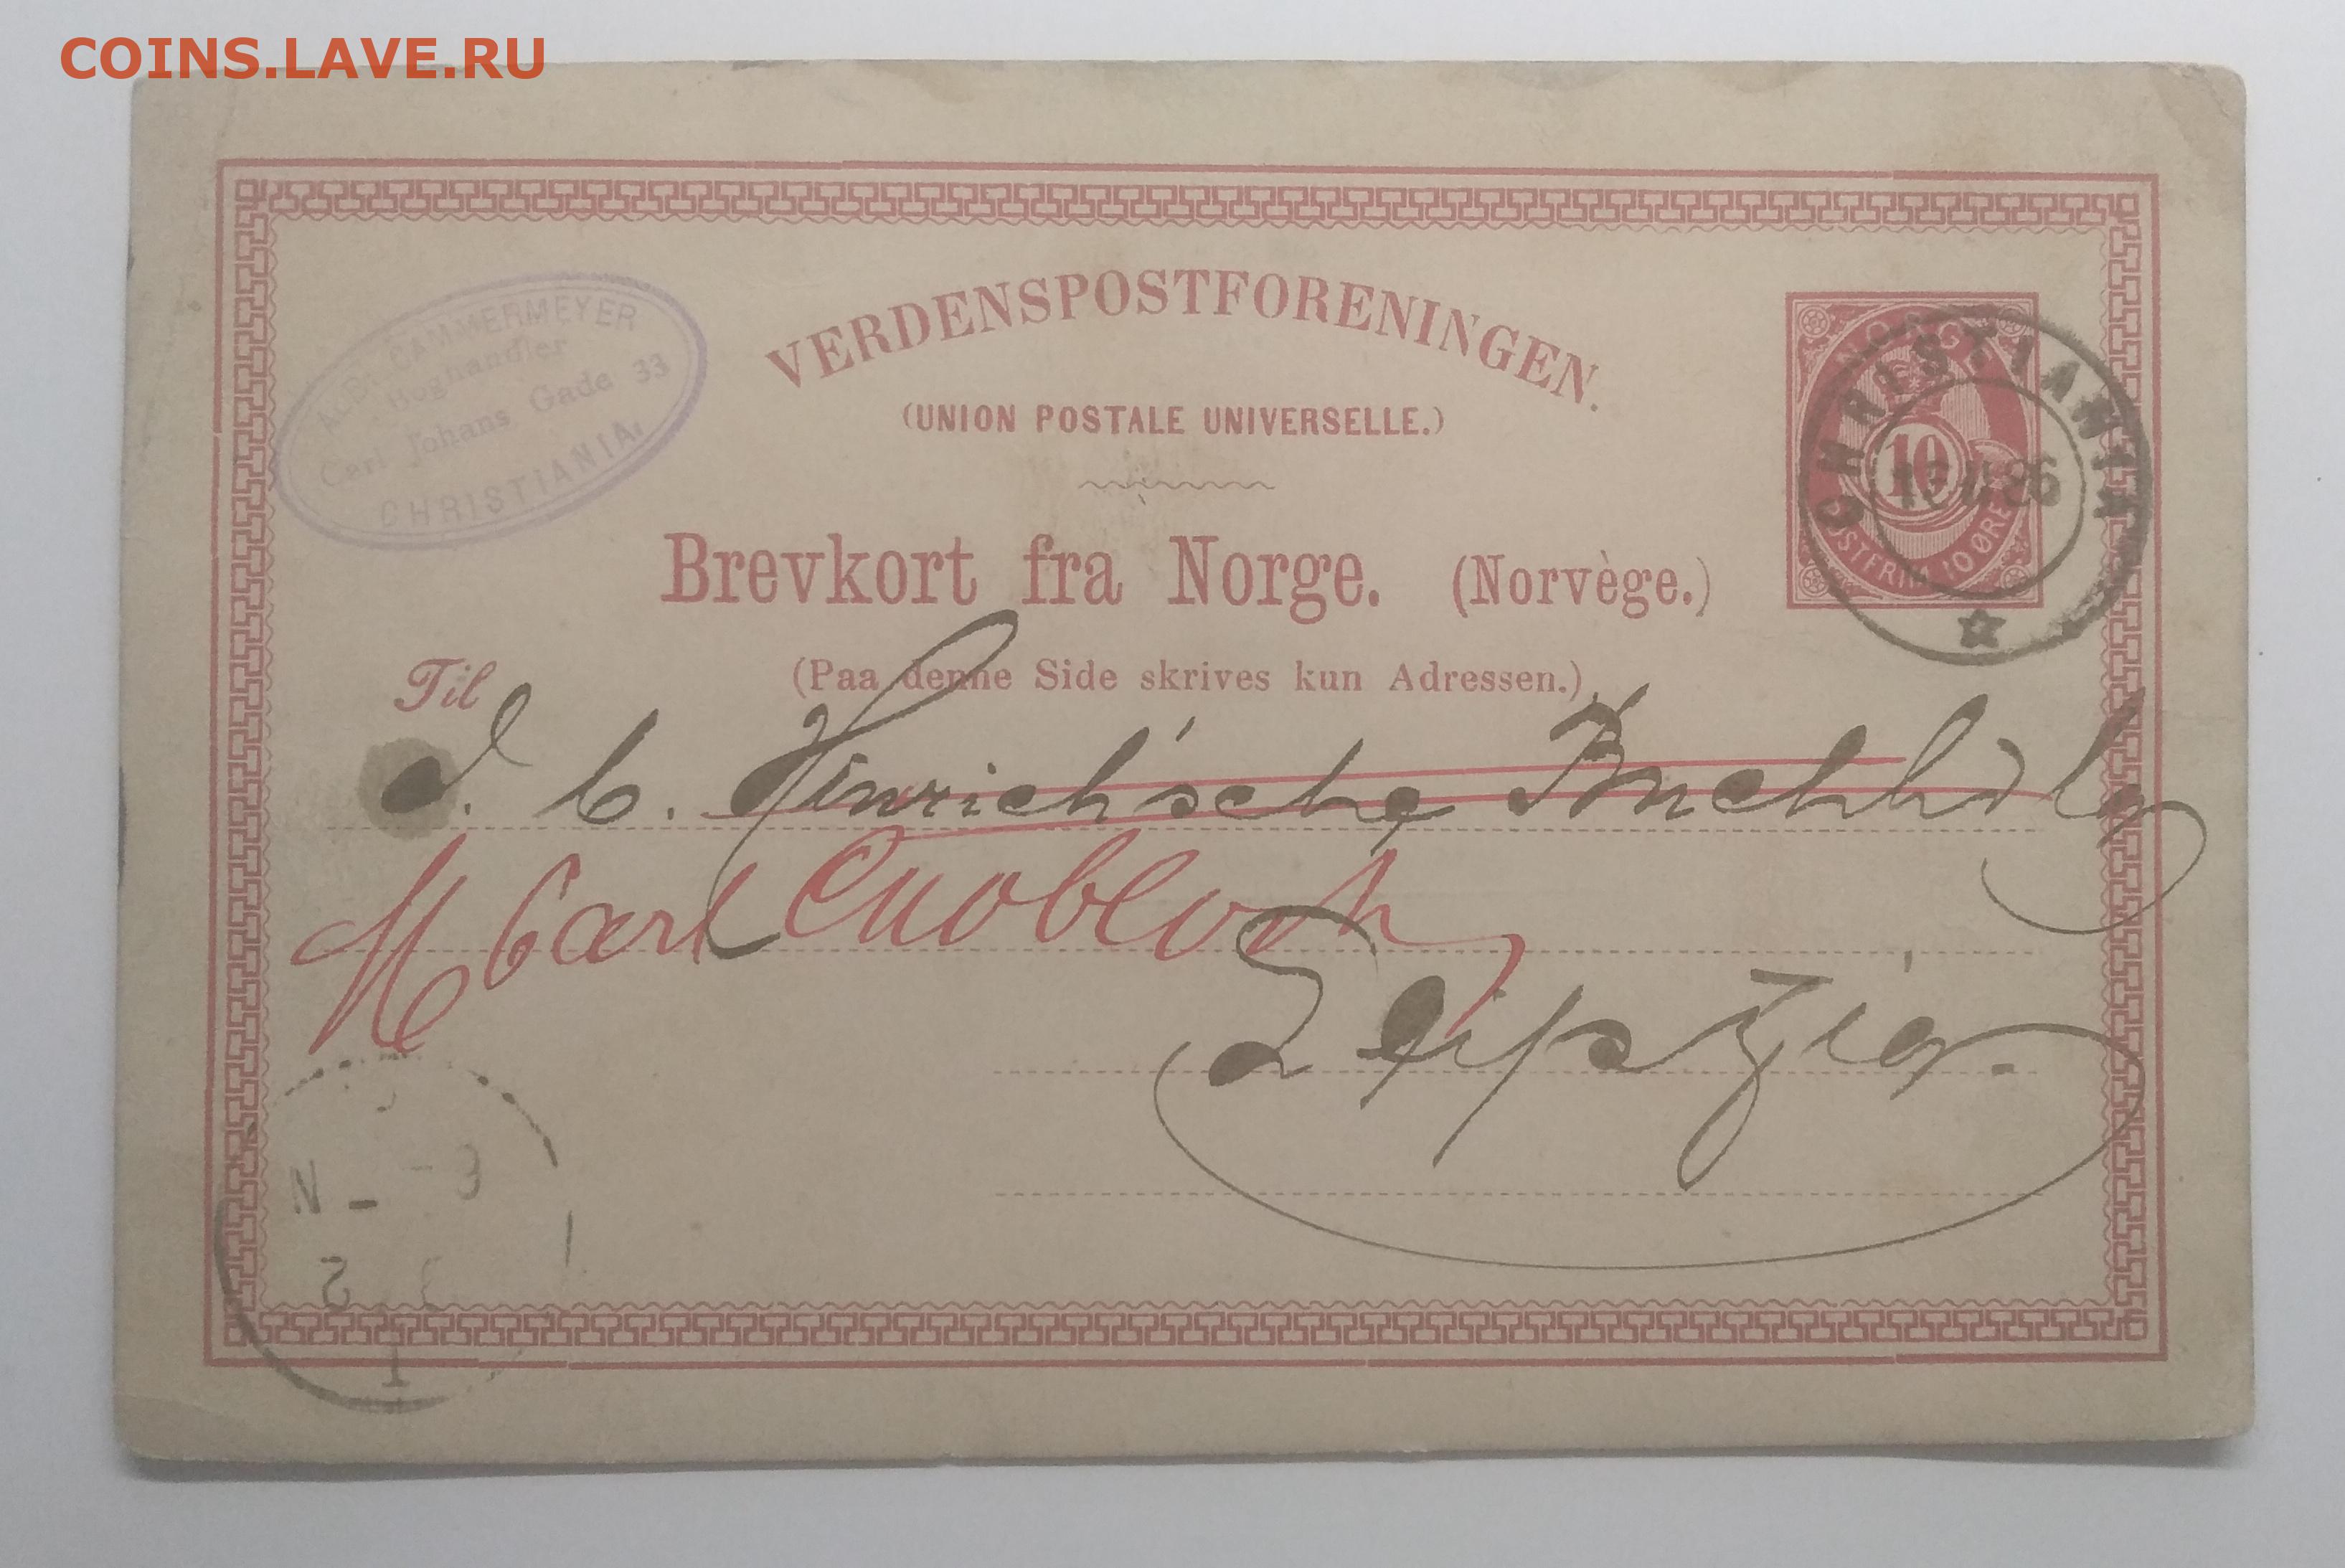 COINS.LAVE.RU
ALB. CAMMERMEYER
Boghandler
Carl Johans Gade 33
CHRISTIANIA.
VERDENSPOSTFORENINGEN.
(UNION POSTALE UNIVERSELLE.)
NORGE
10
POSTFRIM. 10 ØRE
CHRISTIANIA
86
Brevkort fra Norge. (Norvège.)
(Paa denne Side skrives kun Adressen.)
Til
J. C. Hinrich'sche Buchhdlg
H Carl Cnobloch
Leipzig.